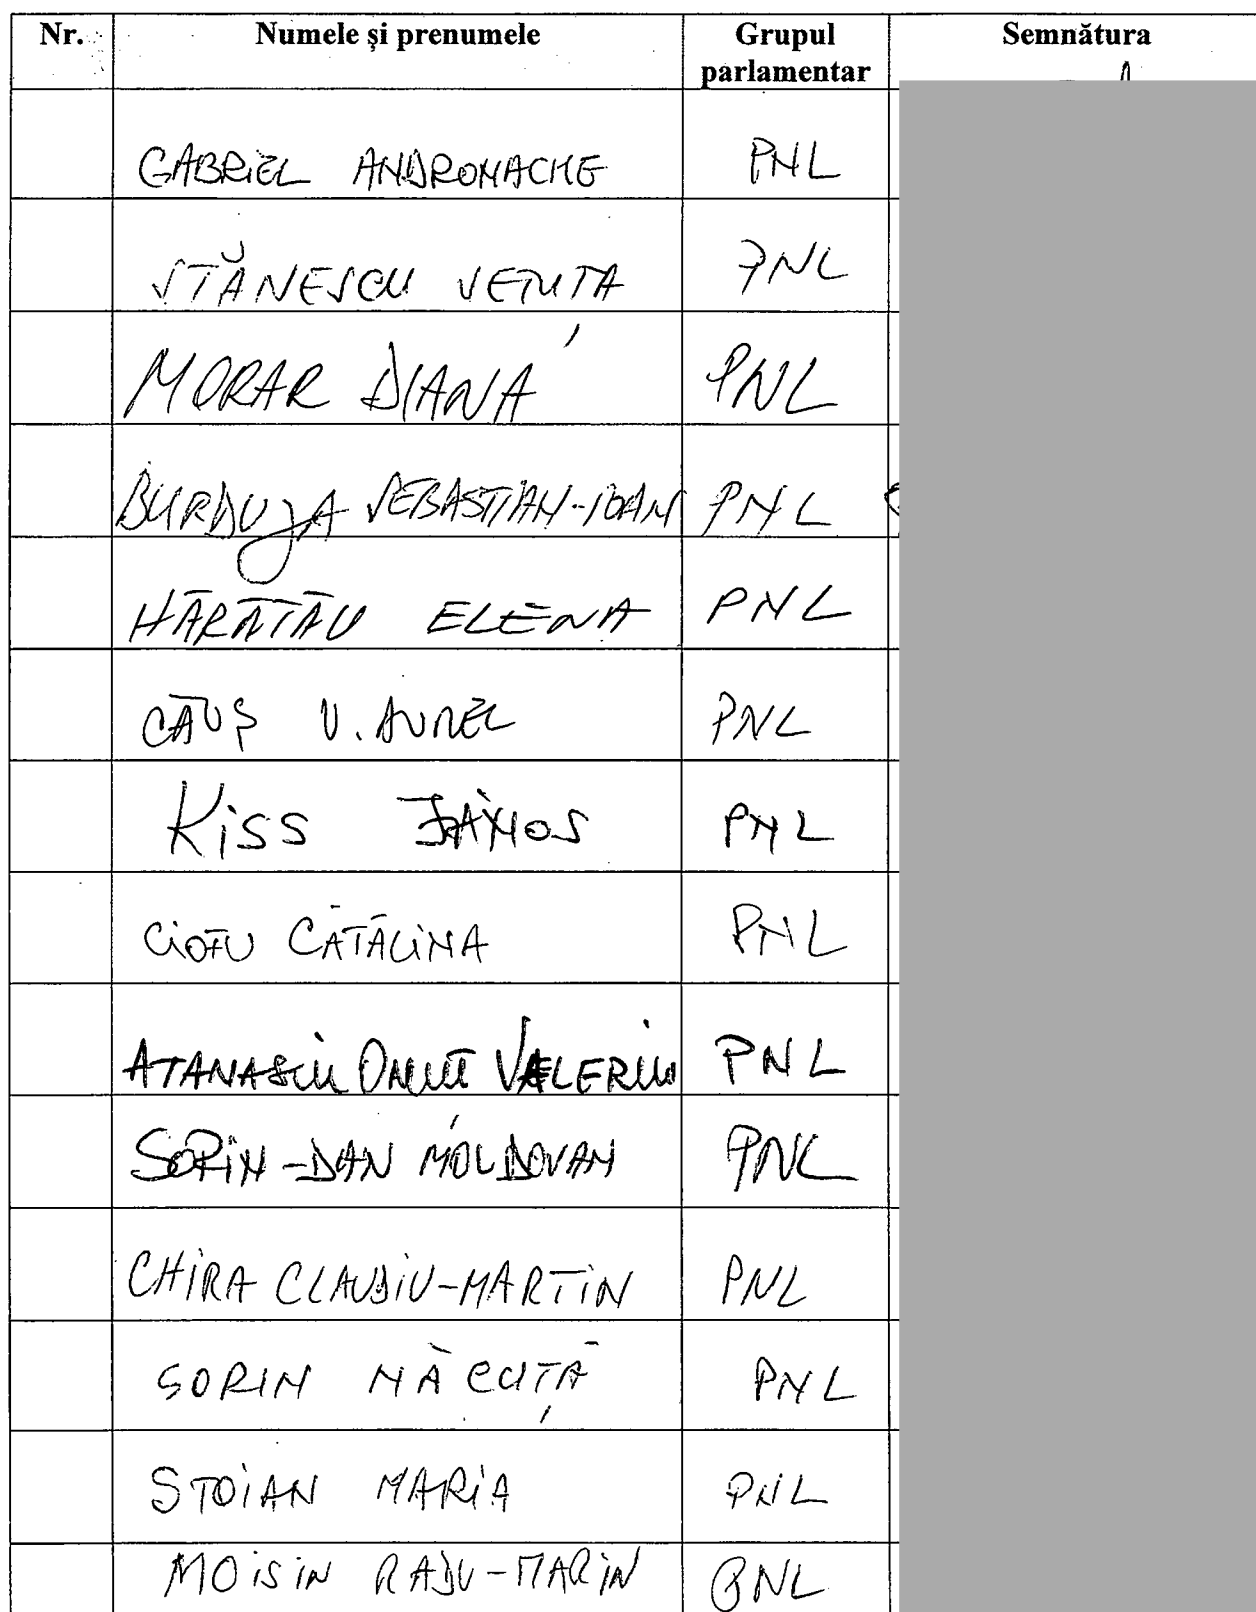 Nr. Numele și prenumele Grupul parlamentar Semnătura
GABRIEL ANDRONACHE PNL
STĂNESCU VETUȚA PNL
MORAR DIANA PNL
BURDUJA SEBASTIAN-IOAN PNL
HĂRĂTĂU ELENA PNL
CĂUȘ V. AUREL PNL
Kiss JÁNOS PNL
CIOFU CĂTĂLINA PNL
ATANASIU ONUȚ VALERIU PNL
SORIN-DAN MOLDOVAN PNL
CHIRA CLAUDIU-MARTIN PNL
SORIN NĂCUȚĂ PNL
STOIAN MARIA PNL
MOISIN RADU-MARIN PNL